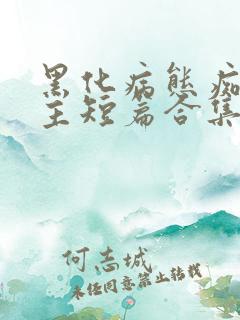 黑化病态痴
主短篇合集
何志城
未经同意禁止转载